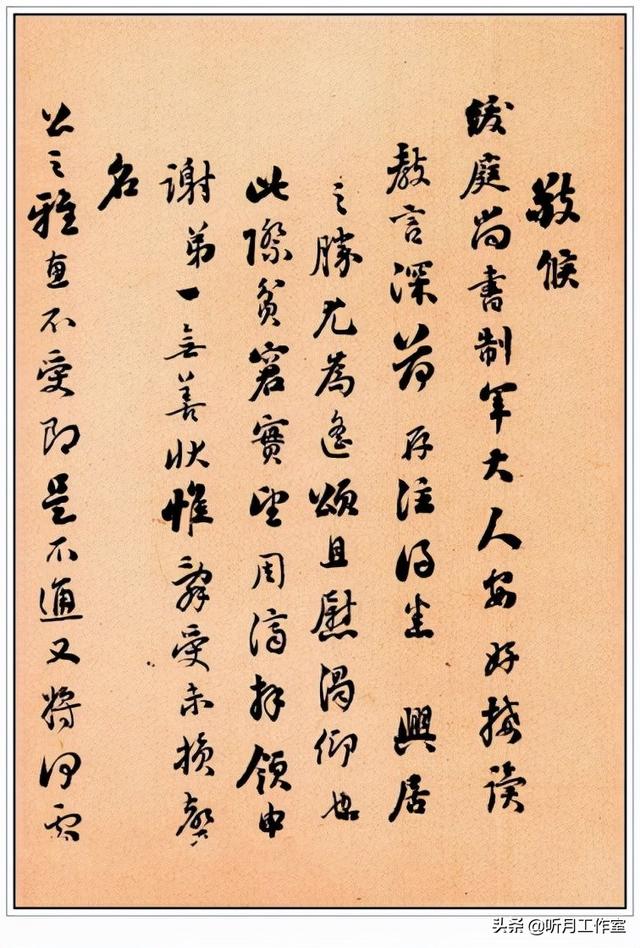 敬候
緩庭尚書制軍大人安好接讀
教言深荷存注得悉興居
之勝尤為遙頌且慰渴仰也
此際貧窘實望周濟拜領申
謝弟一無善狀惟辭受未損聲
名
公之雅意不受即是不通又將何

头条@听月工作室